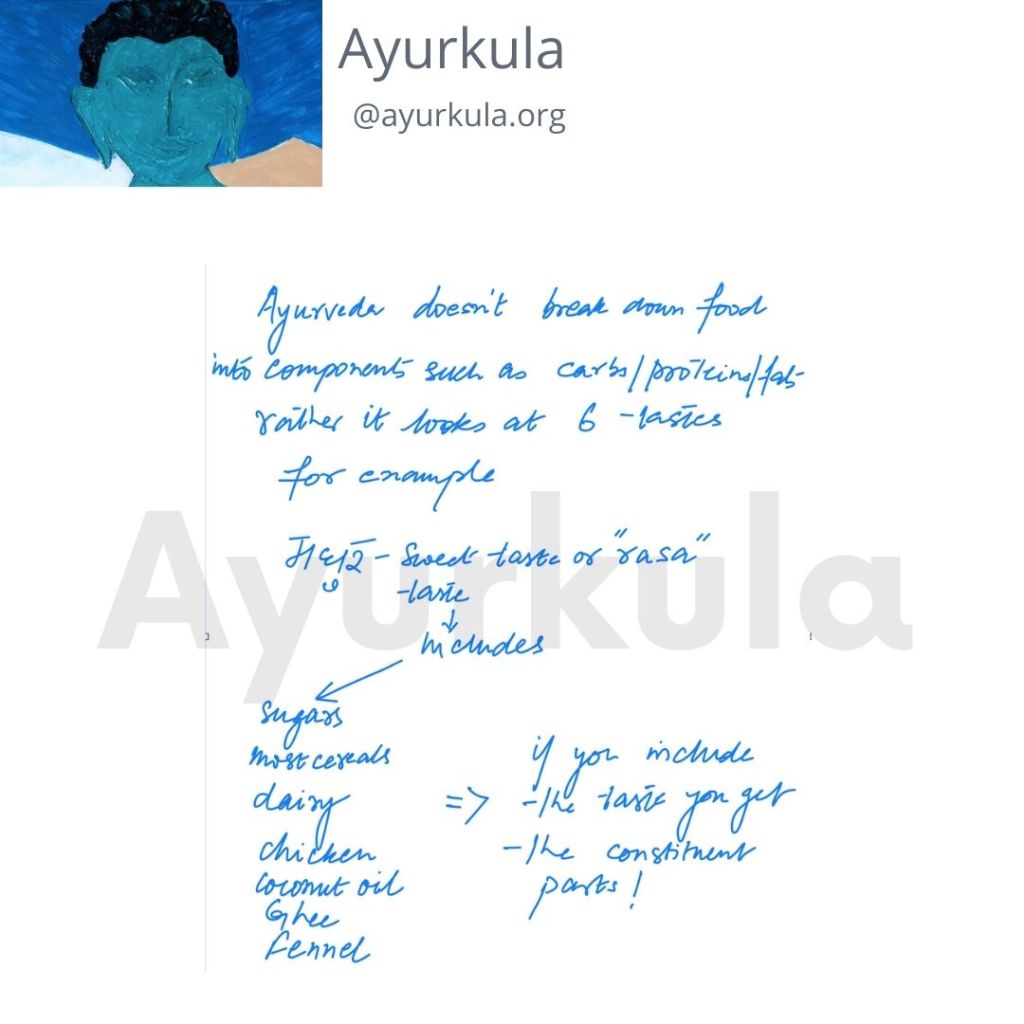 Ayurkula
@ayurkula.org
Ayurveda doesn't break down food
into components such as carbs/proteins/fats
rather it looks at 6 tastes
for example
मधुर - Sweet taste or "rasa"
taste
includes
Sugars
most cereals
dairy
chicken
coconut oil
Ghee
fennel
=> if you include
the taste you get
the constituent
parts!
Ayurkula